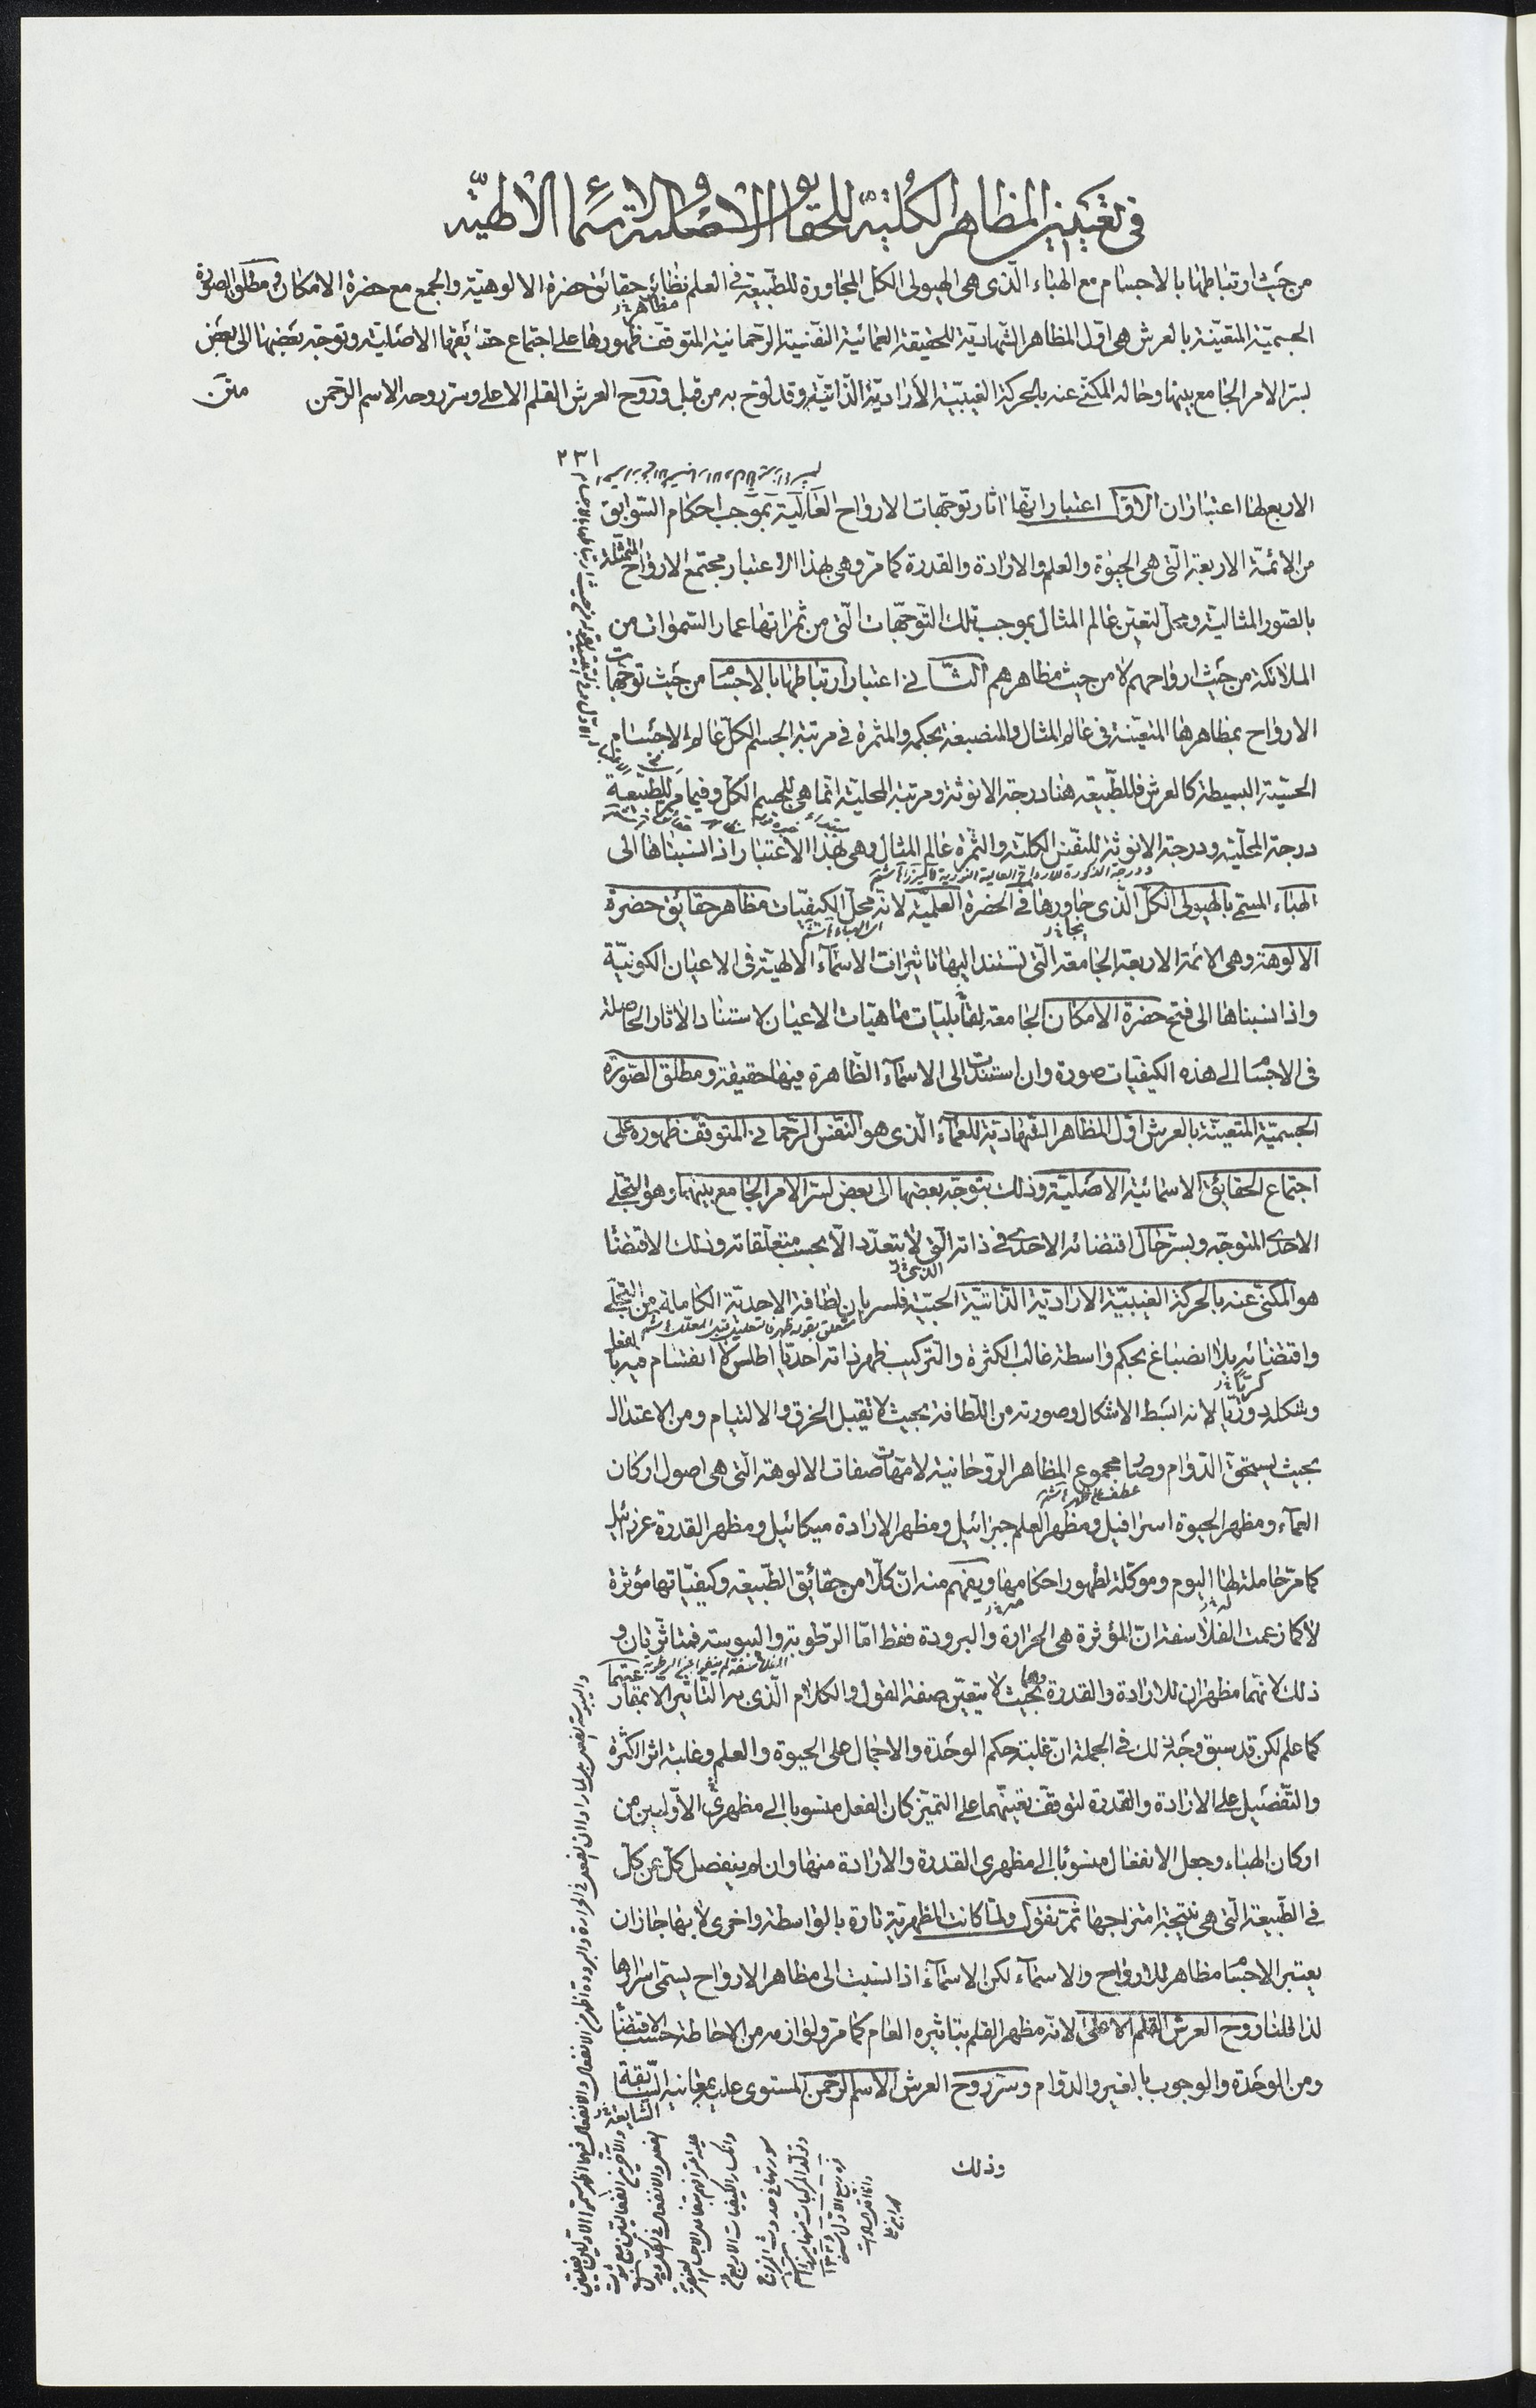 في تعيين المظاهر الكلية للحقائق الاصلية والاسماء الالهية
من حيث ارتباطها بالاجسام مع الهباء الذى هى الهيولى الكل المجاورة للطبيعة في العلم نظائر حقائق حضرة الالوهية والجمع مع حضرة الامكان ومطلق الصورة
مظاهر
الجسمية المتعينة بالعرش هى اول المظاهر الشهادية للحقيقة العمائية النفسية الرحمانية المتوقف ظهورها على اجتماع حقايقها الاصلية وتوجه بعضها الى بعض
لسر الامر الجامع بينها وحاله المكنى عنه بالحركة الغيبية الارادية الذاتية وقد لوح به من قبل وروح العرش القلم الاعلى وسر روحه الاسم الرحمن متن
٢٣١
الاربع لها اعتباران الاول اعتبار انها اثار توجهات الارواح العالية بموجب احكام السوابق
من الائمة الاربعة التى هى الحيوة والعلم والارادة والقدرة كما مر وهى بهذا الاعتبار مجتمع الارواح المتمثلة
بالصور المثالية ومحل لتعين عالم المثال بموجب تلك التوجهات التى من ثمراتها عمار السموات من
الملائكة من حيث ارواحهم لا من حيث مظاهرهم الثاني اعتبار ارتباطها بالاجسام من حيث توجهات
الارواح بمظاهرها المتعينة في عالم المثال والمنصبغة بحكمه والمثمرة في مرتبة الجسم الكل عالم الاجسام
الحسية البسيطة كالعرش فللطبيعة هنا درجة الانوثة ومرتبة المحلية انما هى للجسم الكل وفيما مر للطبيعة
درجة المحلية ودرجة الانوثة للنفس الكلية والثمرة عالم المثال وهى بهذا الاعتبار اذا نسبناها الى
ودرجة الذكورة للارواح العالية النورية
الهباء المسمى بالهيولى الكل الذى جاورها في الحضرة العلمية لانه محل الكيفيات مظاهر حقائق حضرة
الالوهة وهى الائمة الاربعة الجامعة التى تستند اليها تاثيرات الاسماء الالهية فى الاعيان الكونية
واذا نسبناها الى فتح حضرة الامكان الجامعة لقابليات ماهيات الاعيان لاستناد الاثار الحاصلة
فى الاجسام الى هذه الكيفيات صورة وان استندت الى الاسماء الظاهرة فيها حقيقة ومطلق الصورة
الجسمية المتعينة بالعرش اول المظاهر الشهادية للعماء الذى هو النفس الرحماني المتوقف ظهوره على
اجتماع الحقايق الاسمائية الاصلية وذلك بتوجه بعضها الى بعض لسر الامر الجامع بينهما وهو التجلى
الاحدى المتوجه وبسر حال اقتضائه الاحدى في ذاته التى لا يتعدد الا بحسب متعلقاته وذلك الاقتضاء
هو المكنى عنه بالحركة الغيبية الارادية الذاتية الحبية فلسريان لطافة الاحدية الكاملة من التجلى
واقتضائه بلا انصباغ بحكم واسطة غالب الكثرة والتركيب ظهر ذاته احديا اطلس لا انقسام فيه بالفعل
وشكله دوريا لانه ابسط الاشكال وصورته من اللطافة بحيث لا تقبل الخرق والالتيام ومن الاعتدال
بحيث يستحق الدوام وصار مجموع المظاهر الروحانية لامهات صفات الالوهة التى هى اصول اركان
العماء ومظهر الحيوة اسرافيل ومظهر العلم جبرائيل ومظهر الارادة ميكائيل ومظهر القدرة عزرائيل
كما مر حاملة لها اليوم وموكلة لظهور احكامها ويفهم منه ان كلا من حقائق الطبيعة وكيفياتها مؤثرة
لا كما زعمت الفلاسفة ان المؤثرة هى الحرارة والبرودة فقط اما الرطوبة واليبوسة فمتاثرتان و
ذلك لانهما مظهران للارادة والقدرة بحيث لا يتعين صفة القول والكلام الذى به التاثير الا بمقارعتهما
كما علم لكن قد سبق وجه ذلك في الجملة ان غلبة حكم الوحدة والاجمال على الحيوة والعلم وغلبة اثر الكثرة
والتفصيل على الارادة والقدرة لتوقف تعينهما على التميز كان الفعل منسوبا الى مظهرى الاوليين من
اركان الهباء وجعل الانفعال منسوبا الى مظهرى القدرة والارادة منها وان لم ينفصل كل عن كل
في الطبيعة التى هى نتيجة امتزاجها ثم نقول ولما كانت المظهرية تارة بالواسطة واخرى لا بها جاز ان
يعتبر الاجسام مظاهر للارواح والاسماء لكن الاسماء اذا نسبت الى مظاهر الارواح يسمى اسرارها
لذا قلنا روح العرش القلم الاعلى لانه مظهر القلم بتاثيره العام كما مر ولوازمه من الاحاطة حسب الاقتضاء
ومن الوحدة والوجوب بالغير والدوام وسر روح العرش الاسم الرحمن المستوى عليه بمعانيه السابقة
وذلك